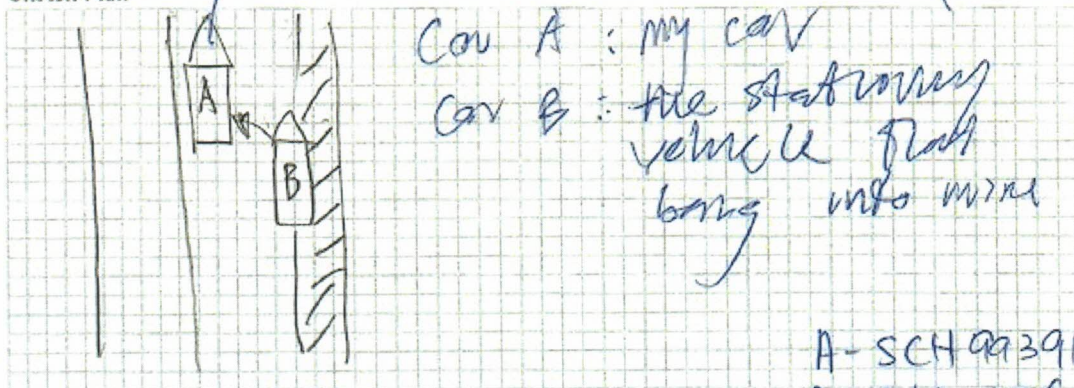 Car A : my car
Car B : the stationary
vehicle that
bang into mine
A
B
A - SCH 9939